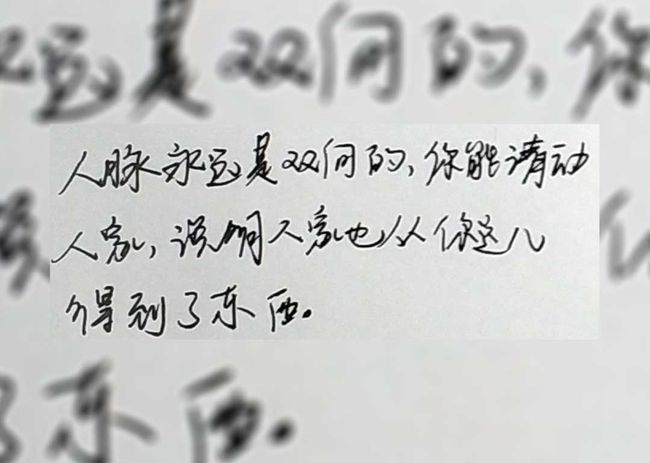 人脉永远是双向的,你能请动
人家,说明人家也从你这儿
得到了东西。